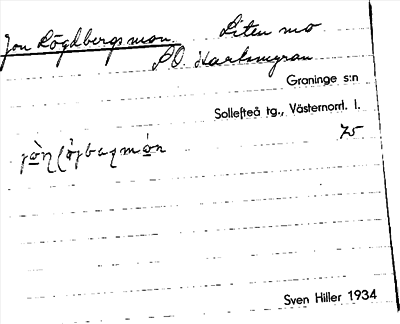 Jon Lögdbergs mon. Liten mo
SO. Harlomgran
Graninge s:n
Sollefteå tg., Västernorrl. l.
75
Sven Hiller 1934